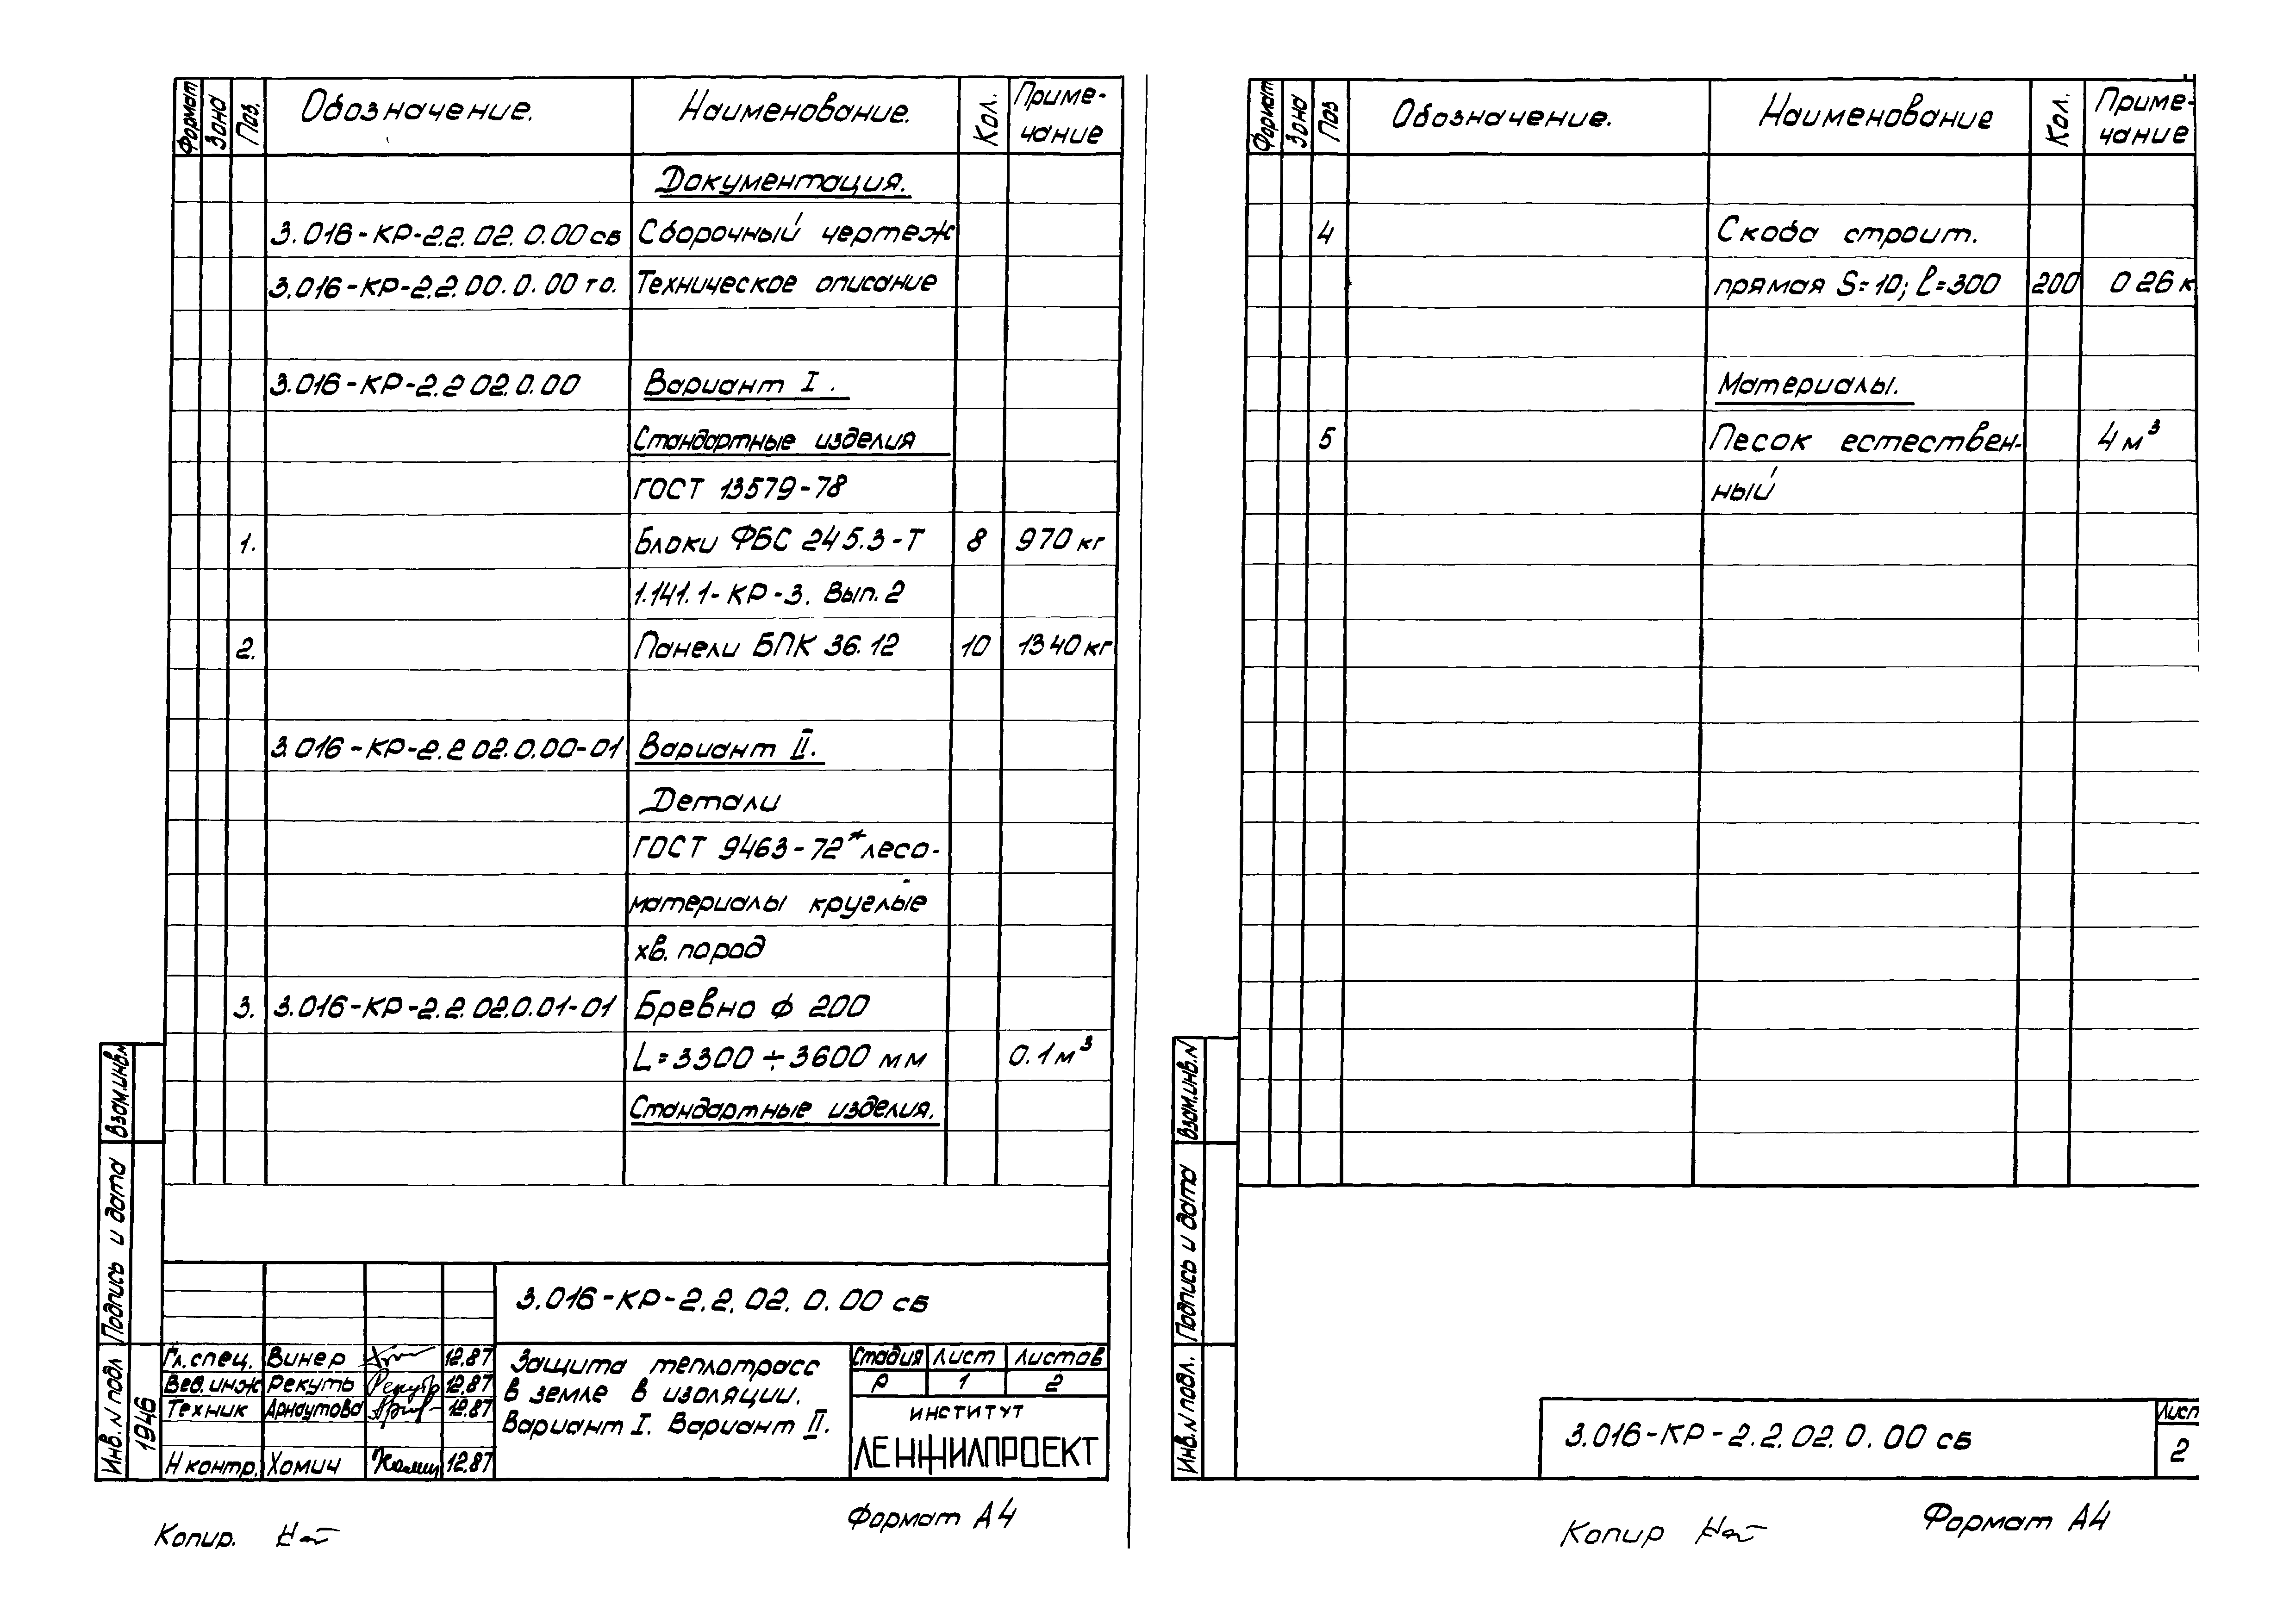 Формат Зона Поз. Обозначение. Наименование. Кол. Приме-
чание
Документация.
3.016-КР-2.2.02.0.00 сб Сборочный чертеж
3.016-КР-2.2.00.0.00 то. Техническое описание
3.016-КР-2.2 02.0.00 Вариант I.
Стандартные изделия
ГОСТ 13579-78
1. Блоки ФБС 24 5.3-Т 8 970 кг
1.141.1-КР-3. Вып. 2
2. Панели БПК 36.12 10 1340 кг
3.016-КР-2.2 02.0.00-01 Вариант II.
Детали
ГОСТ 9463-72* лесо-
материалы круглые
хв. пород
3. 3.016-КР-2.2.02.0.01-01 Бревно ф 200
L=3300÷3600 мм 0.1 м³
Стандартные изделия.
Взам.инв.N
Подпись и дата
Инв.N подл
1946
3.016-КР-2.2.02.0.00 сб
Гл.спец. Винер 12.87
Вед.инж Рекуть 12.87
Техник Арнаутова 12.87
Н контр. Хомич 12.87
Защита теплотрасс
в земле в изоляции.
Вариант I. Вариант II.
Стадия Лист Листов
Р 1 2
ИНСТИТУТ
ЛЕНЖИЛПРОЕКТ
Копир.
Формат А4
Формат Зона Поз Обозначение. Наименование Кол. Приме-
чание
4 Скоба строит.
прямая S=10; ℓ=300 200 0 26 к
Материалы.
5 Песок естествен- 4 м³
ный
Взам.инв.N
Подпись и дата
Инв.N подл.
3.016-КР-2.2.02.0.00 сб
Лист
2
Копир
Формат А4